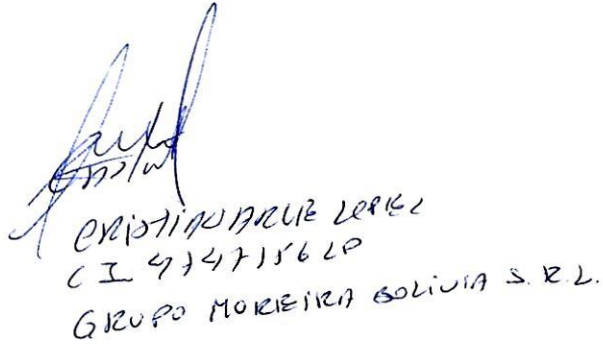 CRISTIAN ARCE LOPEZ
CI 4747156 LP
GRUPO MOREIRA BOLIVIA S.R.L.